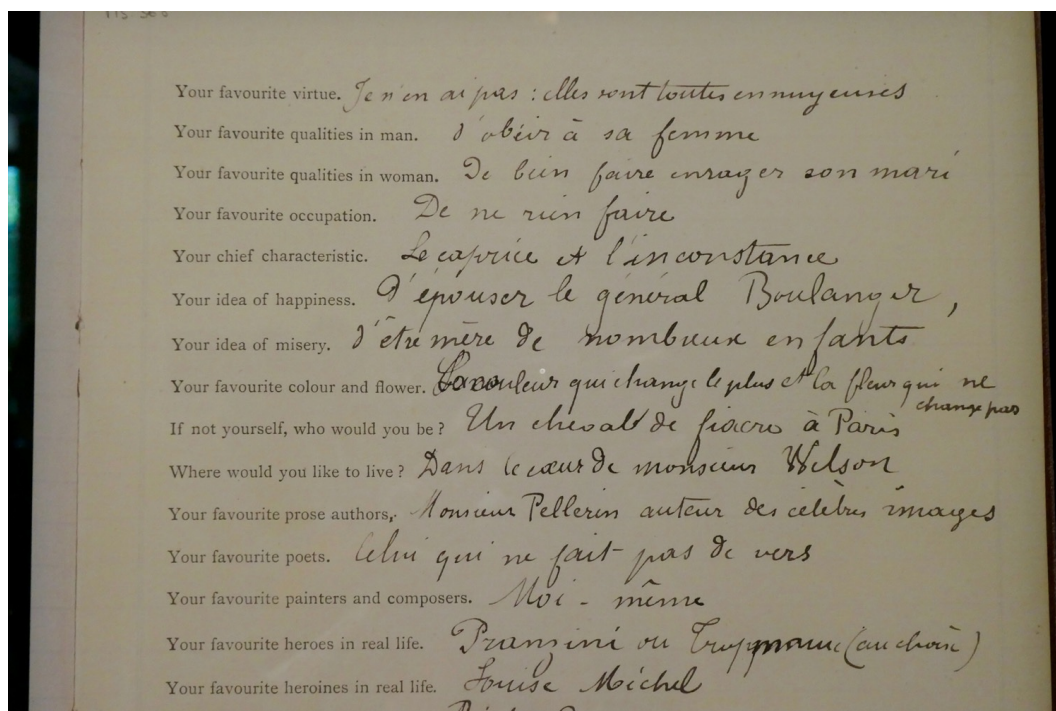 Your favourite virtue. Je n'en ai pas : elles sont toutes ennuyeuses
Your favourite qualities in man. d'obéir à sa femme
Your favourite qualities in woman. De bien faire enrager son mari
Your favourite occupation. De ne rien faire
Your chief characteristic. Le caprice et l'inconstance
Your idea of happiness. D'épouser le général Boulanger,
Your idea of misery. d'être mère de nombreux enfants
Your favourite colour and flower. La couleur qui change le plus et la fleur qui ne
change pas
If not yourself, who would you be? Un cheval de fiacre à Paris
Where would you like to live? Dans le cœur de monsieur Wilson
Your favourite prose authors. Monsieur Pellerin auteur des célèbres images
Your favourite poets. Celui qui ne fait pas de vers
Your favourite painters and composers. Moi-même
Your favourite heroes in real life. Pranzini ou Troppmann (au choix)
Your favourite heroines in real life. Louise Michel